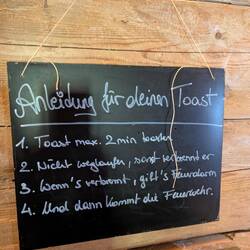 Anleitung für deinen Toast
1. Toast max. 2 min toasten
2. Nicht weglaufen, sonst verbrennt er
3. Wenn's verbrennt, gibt's Feueralarm
4. Und dann kommt die Feuerwehr.